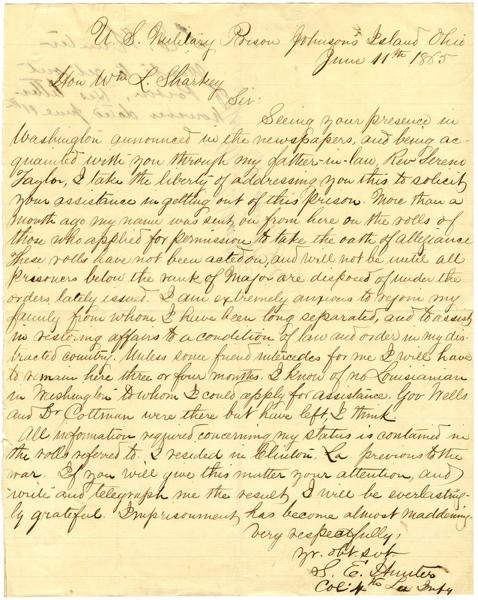 U. S. Military Prison Johnson's Island Ohio
June 11th 1865
Hon Wm L. Sharkey
Sir:
Seeing your presence in
Washington announced in the newspapers, and being ac-
quainted with you through my father-in-law, Rev Sereno
Taylor, I take the liberty of addressing you this to solicit
your assistance in getting out of this prison. More than a
month ago my name was sent on from here on the rolls of
those who applied for permission to take the oath of allegiance
These rolls have not been acted on, and will not be until all
prisoners below the rank of Major are disposed of under the
orders lately issued. I am extremely anxious to rejoin my
family from whom I have been long separated, and to assist
in restoring affairs to a condition of law and order in my dis-
tracted country. Unless some friend intercedes for me I will have
to remain here three or four months. I know of no Louisianian
in Washington to whom I could apply for assistance. Gov Wells
and Dr Cottman were there but have left, I think.
All information required concerning my status is contained in
the rolls referred to. I resided in Clinton, La previous to the
war. If you will give this matter your attention, and
write and telegraph me the result, I will be everlasting-
ly grateful. Imprisonment has become almost maddening.
Very respectfully,
yr. obt svt.
S. E. Hunter
Col 4th La Infy